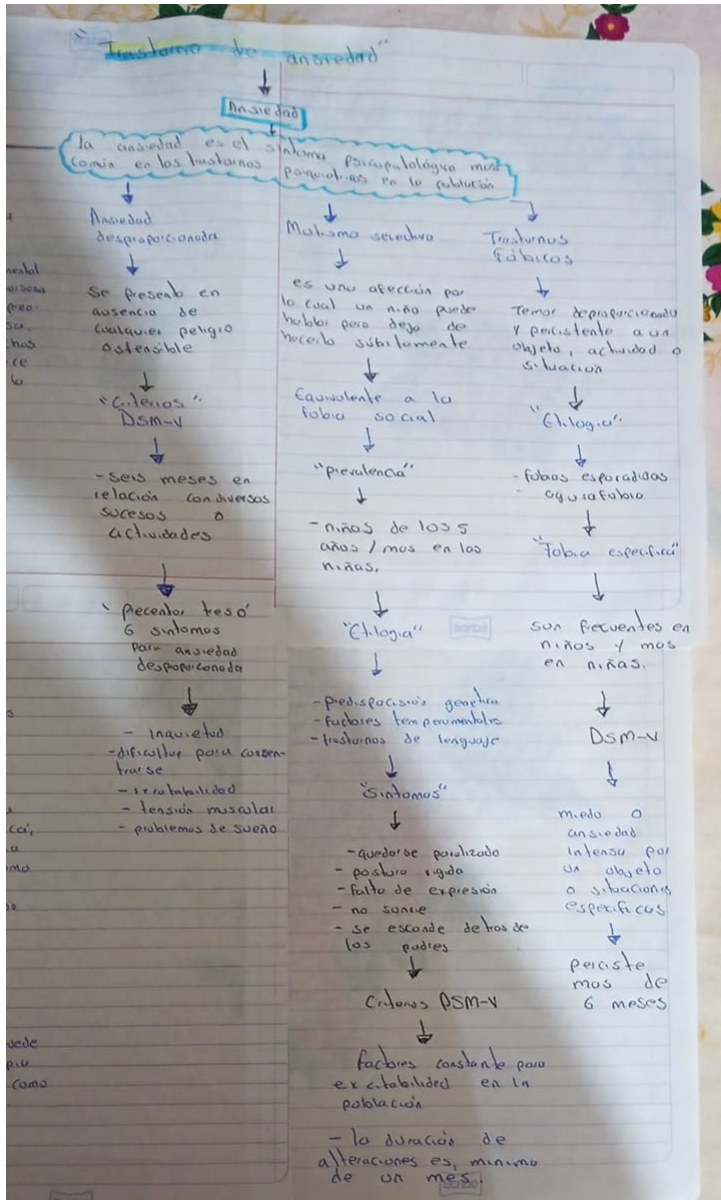 "Trastorno de ansiedad"
Ansiedad
la ansiedad es el sintoma psicopatológico mas
común en los trastornos psiquiatricos en la población
Ansiedad
desproporcionada
se presenta en
ausencia de
cualquier peligro
ostensible
"Criterios"
DSM-V
- seis meses en
relación con diversos
sucesos o
actividades
6 sintomas
para ansiedad
desproporcionada
- inquietud
- dificultad para
trarse
- tensión muscular
- problemas de sueño
Mutismo selectivo
es una afección por
lo cual un niño puede
hablar pero deja de
hacerlo súbitamente
Equivalente a la
fobia social
"prevalencia"
- niños de los 5
años / mas en las
niñas.
"Etilogia"
- predisposición genetica
- factores temperamentales
- trastornos de lenguaje
"Sintomas"
- quedarse paralizado
- postura rigida
- falta de expresión
- no sonrie
- se esconde detras de
los padres
Criterios DSM-V
factores constante para
excitabilidad en la
población
- la duración de
alteraciones es, minimo
de un mes.
Trastornos
Fóbicos
Temor deproporcionado
y percistente a un
objeto, actividad o
situación
"Etilogia"
- fobias esporadidas
- agorafobia
"Fobia especifica"
son frecuentes en
niños y mas
en niñas.
DSM-V
miedo o
ansiedad
intensa por
un objeto
o situaciones
especificas
perciste
mas de
6 meses
mental
ce
mo
uede
como